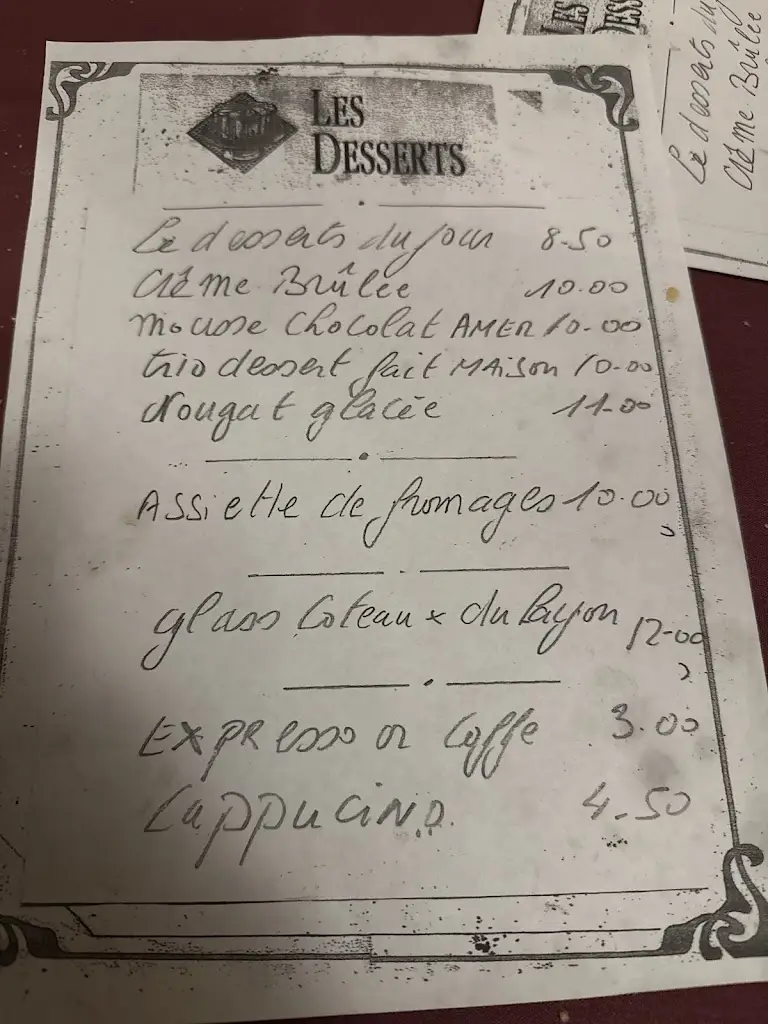 LES
DESSERTS
Le desserts du jour 8.50
Crème Brûlée 10.00
mousse Chocolat AMER 10.00
trio dessert fait MAison 10.00
Nougat glacée 11.00
Assiette de fromages 10.00
glass Coteaux du layon 12.00
Expresso or Coffe 3.00
Cappucino 4.50
LES
DESS
Le desserts du
Crème Brûlée